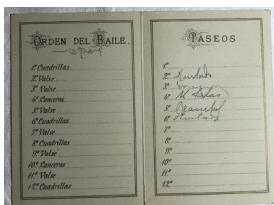 ORDEN DEL BAILE.
1ª Cuadrillas
2º Valse
3º Valse
4º Lanceros
5º Valse
6º Cuadrillas
7º Valse
8º Cuadrillas
9º Valse
10º Lanceros
11º Valse
12º Cuadrillas
PASEOS
1º
2º Hurtado
3º
4º
5º
6º Hurtado
7º
8º
9º
10º
11º
12º